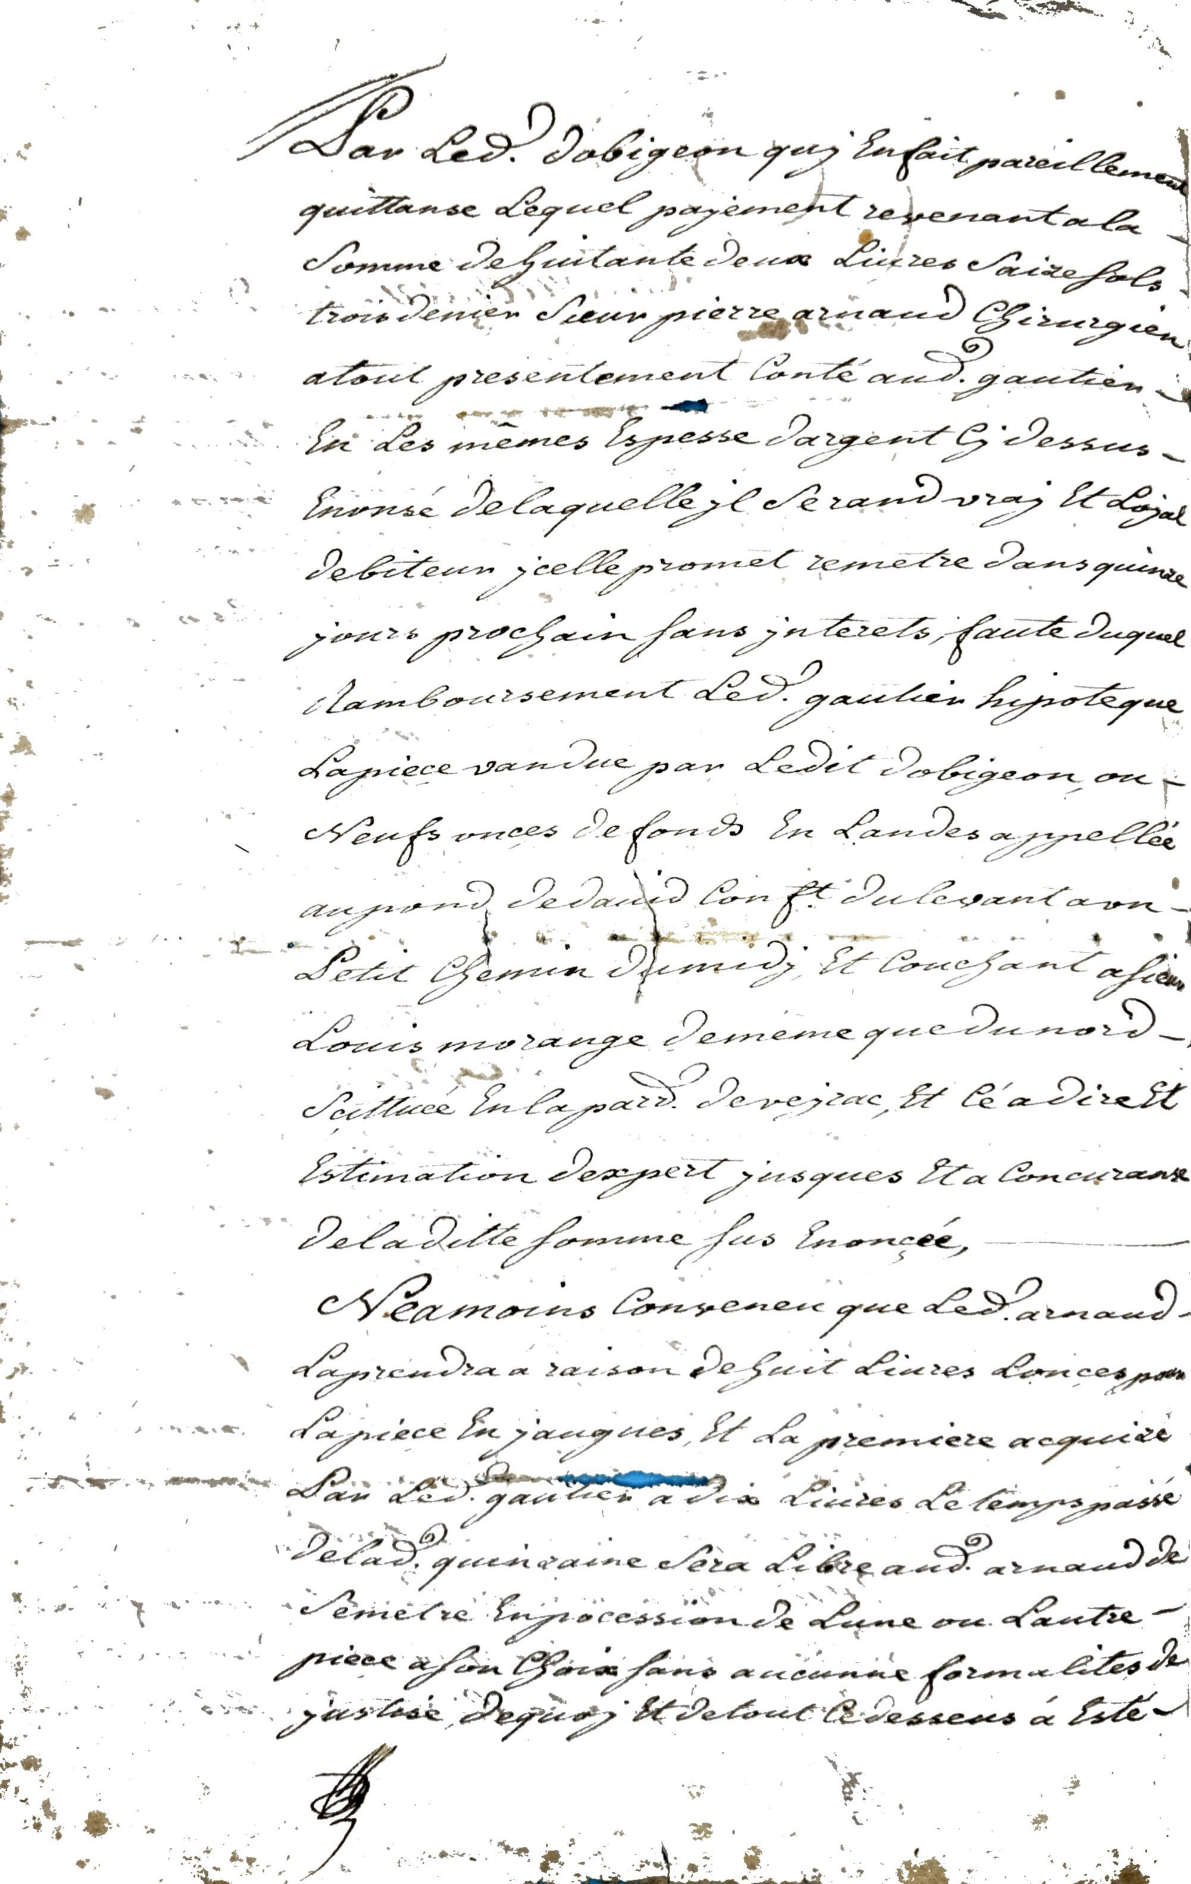 Par Led. dobigeon quj En fait pareillement
quittanse Lequel pajement revenant a la
Somme de huitante deux Livres Saize sols
trois denier Sieur pierre arnaud Chirurgien
a tout presentement Conté aud. gautier
En Les mêmes Espesse dargent Cj dessus
Enonsé de laquelle jl Se rand vraj Et Lojal
debiteur jcelle promet remetre dans quinze
jours prochain sans jnterets, faute duquel
Ramboursement Led. gautier hipoteque
La piece vandue par Ledit dobigeon, ou
Neufs onces de fonds En Landes appellée
au pond de david Conft. du levant a un
Petit Chemin du midj, Et Couchant a sieur
Louis morange de meme que du nord
Scittuée En la parr. de vejrac, Et Cé a dire Et
Estimation dexpert jusques Et a Concuranse
de la ditte somme sus Enoncée,
Neamoins Conveneu que Led. arnaud
La prendra a raison de huit Livres Lonces pour
La piece En jaugues, Et La premiere acquize
Par Led. gautier a dix Livres Le temps passé
de lad. quinzaine Sera Libre aud. arnaud de
Semetre En pocession de Lune ou Lautre
piece a son Choix sans aucunne formalites de
justise de quoj Et de tout Ce desseus á Esté